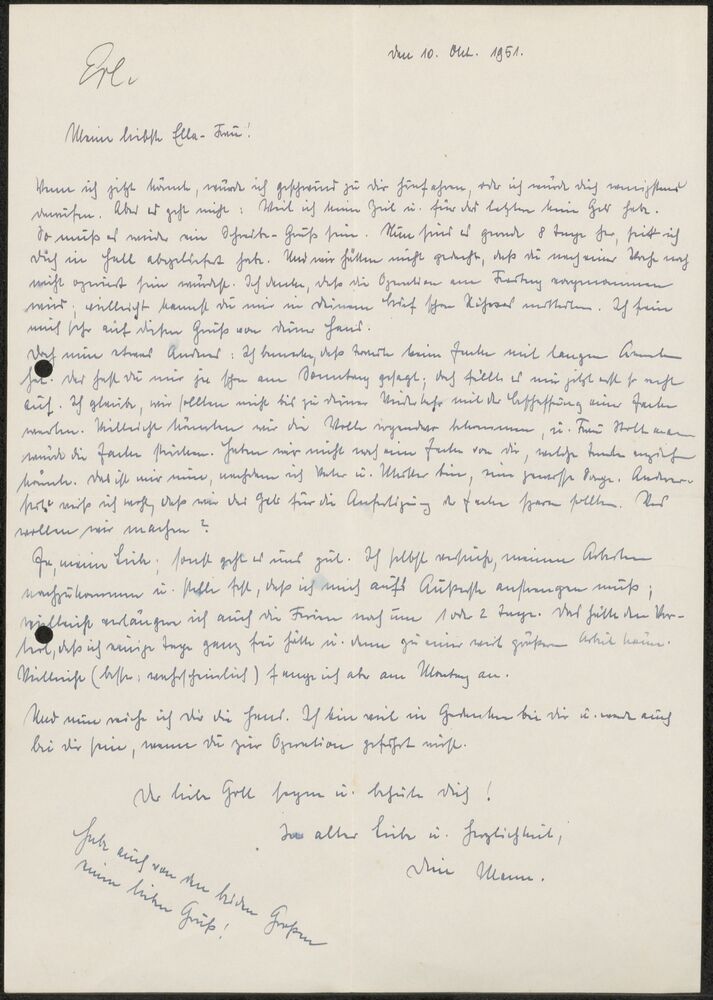 den 10. Okt. 1951.
Erl.
Meine liebste Ella-Frau!
Wenn ich jetzt könnte, würde ich geschwind zu dir hinfahren, oder ich würde dich wenigstens
anrufen. Aber es geht nicht: Weil ich keine Zeit u. für das letztere kein Geld habe.
So muß es wieder ein Schreibe-Gruß sein. Nun sind es gerade 8 Tage her, seit ich
dich in Hall abgeliefert habe. Und wir hätten nicht gedacht, daß du nach einer Woche noch
nicht operiert sein würdest. Ich denke, daß die Operation am Freitag vorgenommen
wird; vielleicht kannst du mir in deinem Brief schon Näheres mitteilen. Ich freue
mich sehr auf diesen Gruß von deiner Hand.
Doch nun etwas Anderes: Ich bemerke, daß keine Jacke mit langen Ärmeln
hat. Das hast du mir ja schon am Sonntag gesagt; doch fällt es mir jetzt erst so recht
auf. Ich glaube, wir sollten nicht bis zu deiner Wiederkehr mit der Beschaffung einer Jacke
warten. Vielleicht könnten wir die Wolle irgendwo bekommen, u. Frau
würde die Jacke stricken. Haben wir nicht noch eine Jacke von dir, welche anziehen
könnte. Das ist mir nun, nachdem ich Vater u. Mutter bin, eine gewisse Sorge. Anderer-
seits weiß ich wohl, daß wir das Geld für die Anfertigung der Jacke sparen sollten. Was
wollen wir machen?
Ja, meine Liebe; sonst geht es uns gut. Ich selbst versuche, meinen Arbeiten
nachzukommen u. stelle fest, daß ich mich aufs Äußerste anstrengen muß;
vielleicht verlängere ich auch die Ferien noch um 1 oder 2 Tage. Das hätte den Vor-
teil, daß ich einige Tage ganz frei hätte u. dann zu einer weit größeren Arbeit käme.
Vielleicht (besser: wahrscheinlich) fange ich aber am Montag an.
Und nun reiche ich dir die Hand. Ich bin viel in Gedanken bei dir u. werde auch
bei dir sein, wenn du zur Operation geführt wirst.
Der liebe Gott segne u. behüte dich!
In aller Liebe u. Herzlichkeit,
Dein Mann.
Habe auch von den beiden Großen
einen lieben Gruß!